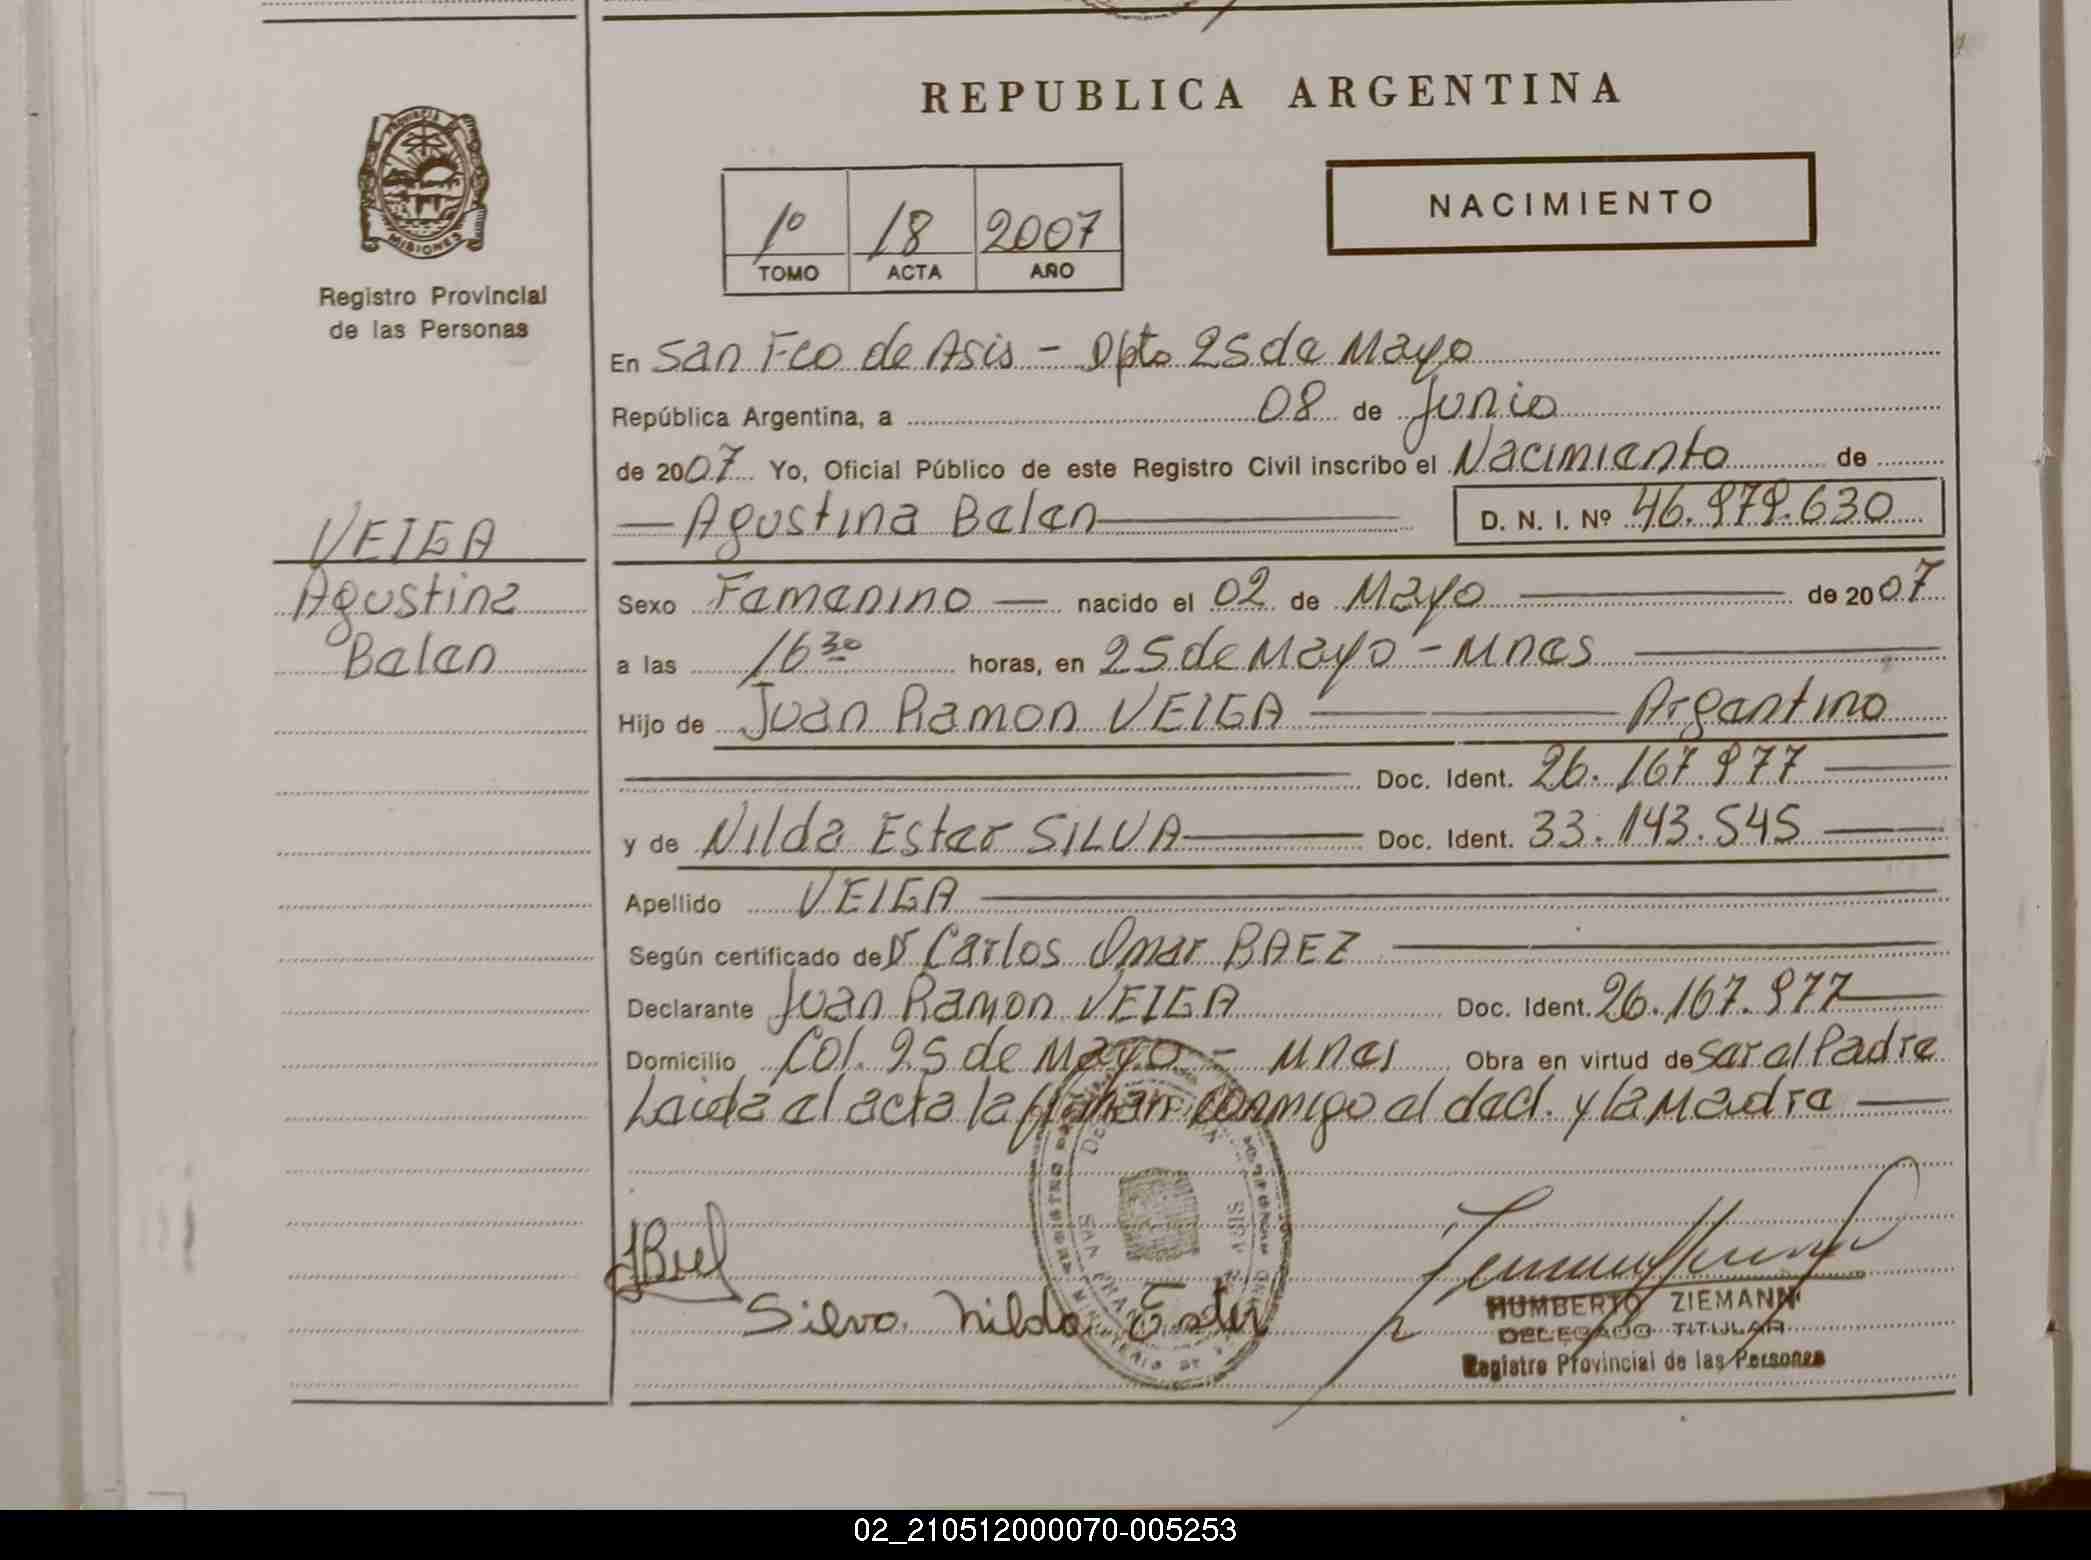 REPUBLICA ARGENTINA
PROVINCIA DE
MISIONES
Registro Provincial
de las Personas
1º 18 2007
TOMO ACTA AÑO
NACIMIENTO
En San Fco de Asis - Dpto 25 de Mayo
República Argentina, a 08 de Junio
de 2007 Yo, Oficial Público de este Registro Civil inscribo el Nacimiento de
Agustina Belen D. N. I. Nº 46.979.630
VEIGA
Agustina
Belen
Sexo Femenino nacido el 02 de Mayo de 2007
a las 16 30 horas, en 25 de Mayo - Mnes
Hijo de Juan Ramon VEIGA Argentino
Doc. Ident. 26.167.977
y de Nilda Ester SILVA Doc. Ident. 33.143.545
Apellido VEIGA
Según certificado de Dr Carlos Omar BAEZ
Declarante Juan Ramon VEIGA Doc. Ident. 26.167.977
Domicilio Col. 25 de Mayo - Mnes Obra en virtud de ser el Padre
Leida el acta la firman conmigo el decl. y la Madre
Silva Nilda Ester
HUMBERTO ZIEMANN
DELEGADO TITULAR
Registro Provincial de las Personas
02_210512000070-005253